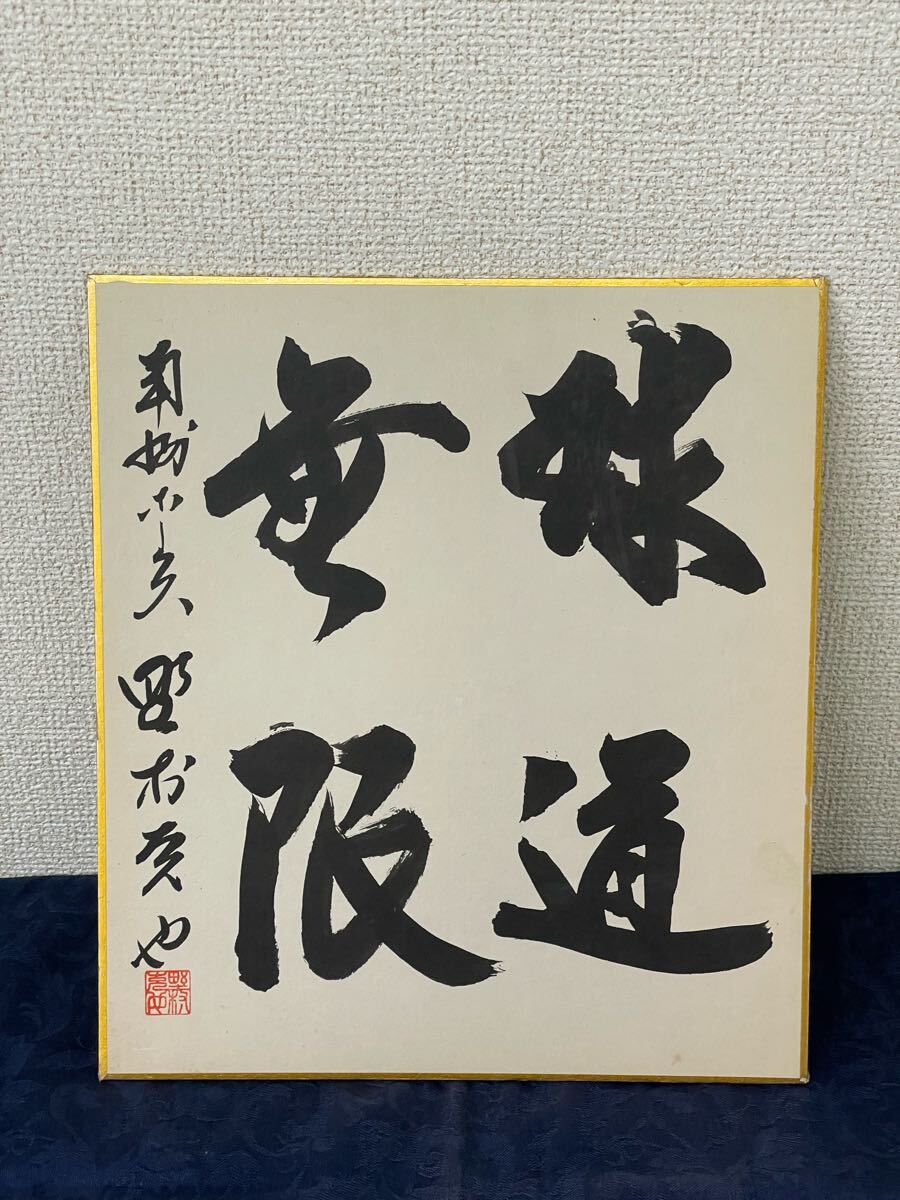 球道
無限
南海ホークス 野村克也
野村克也